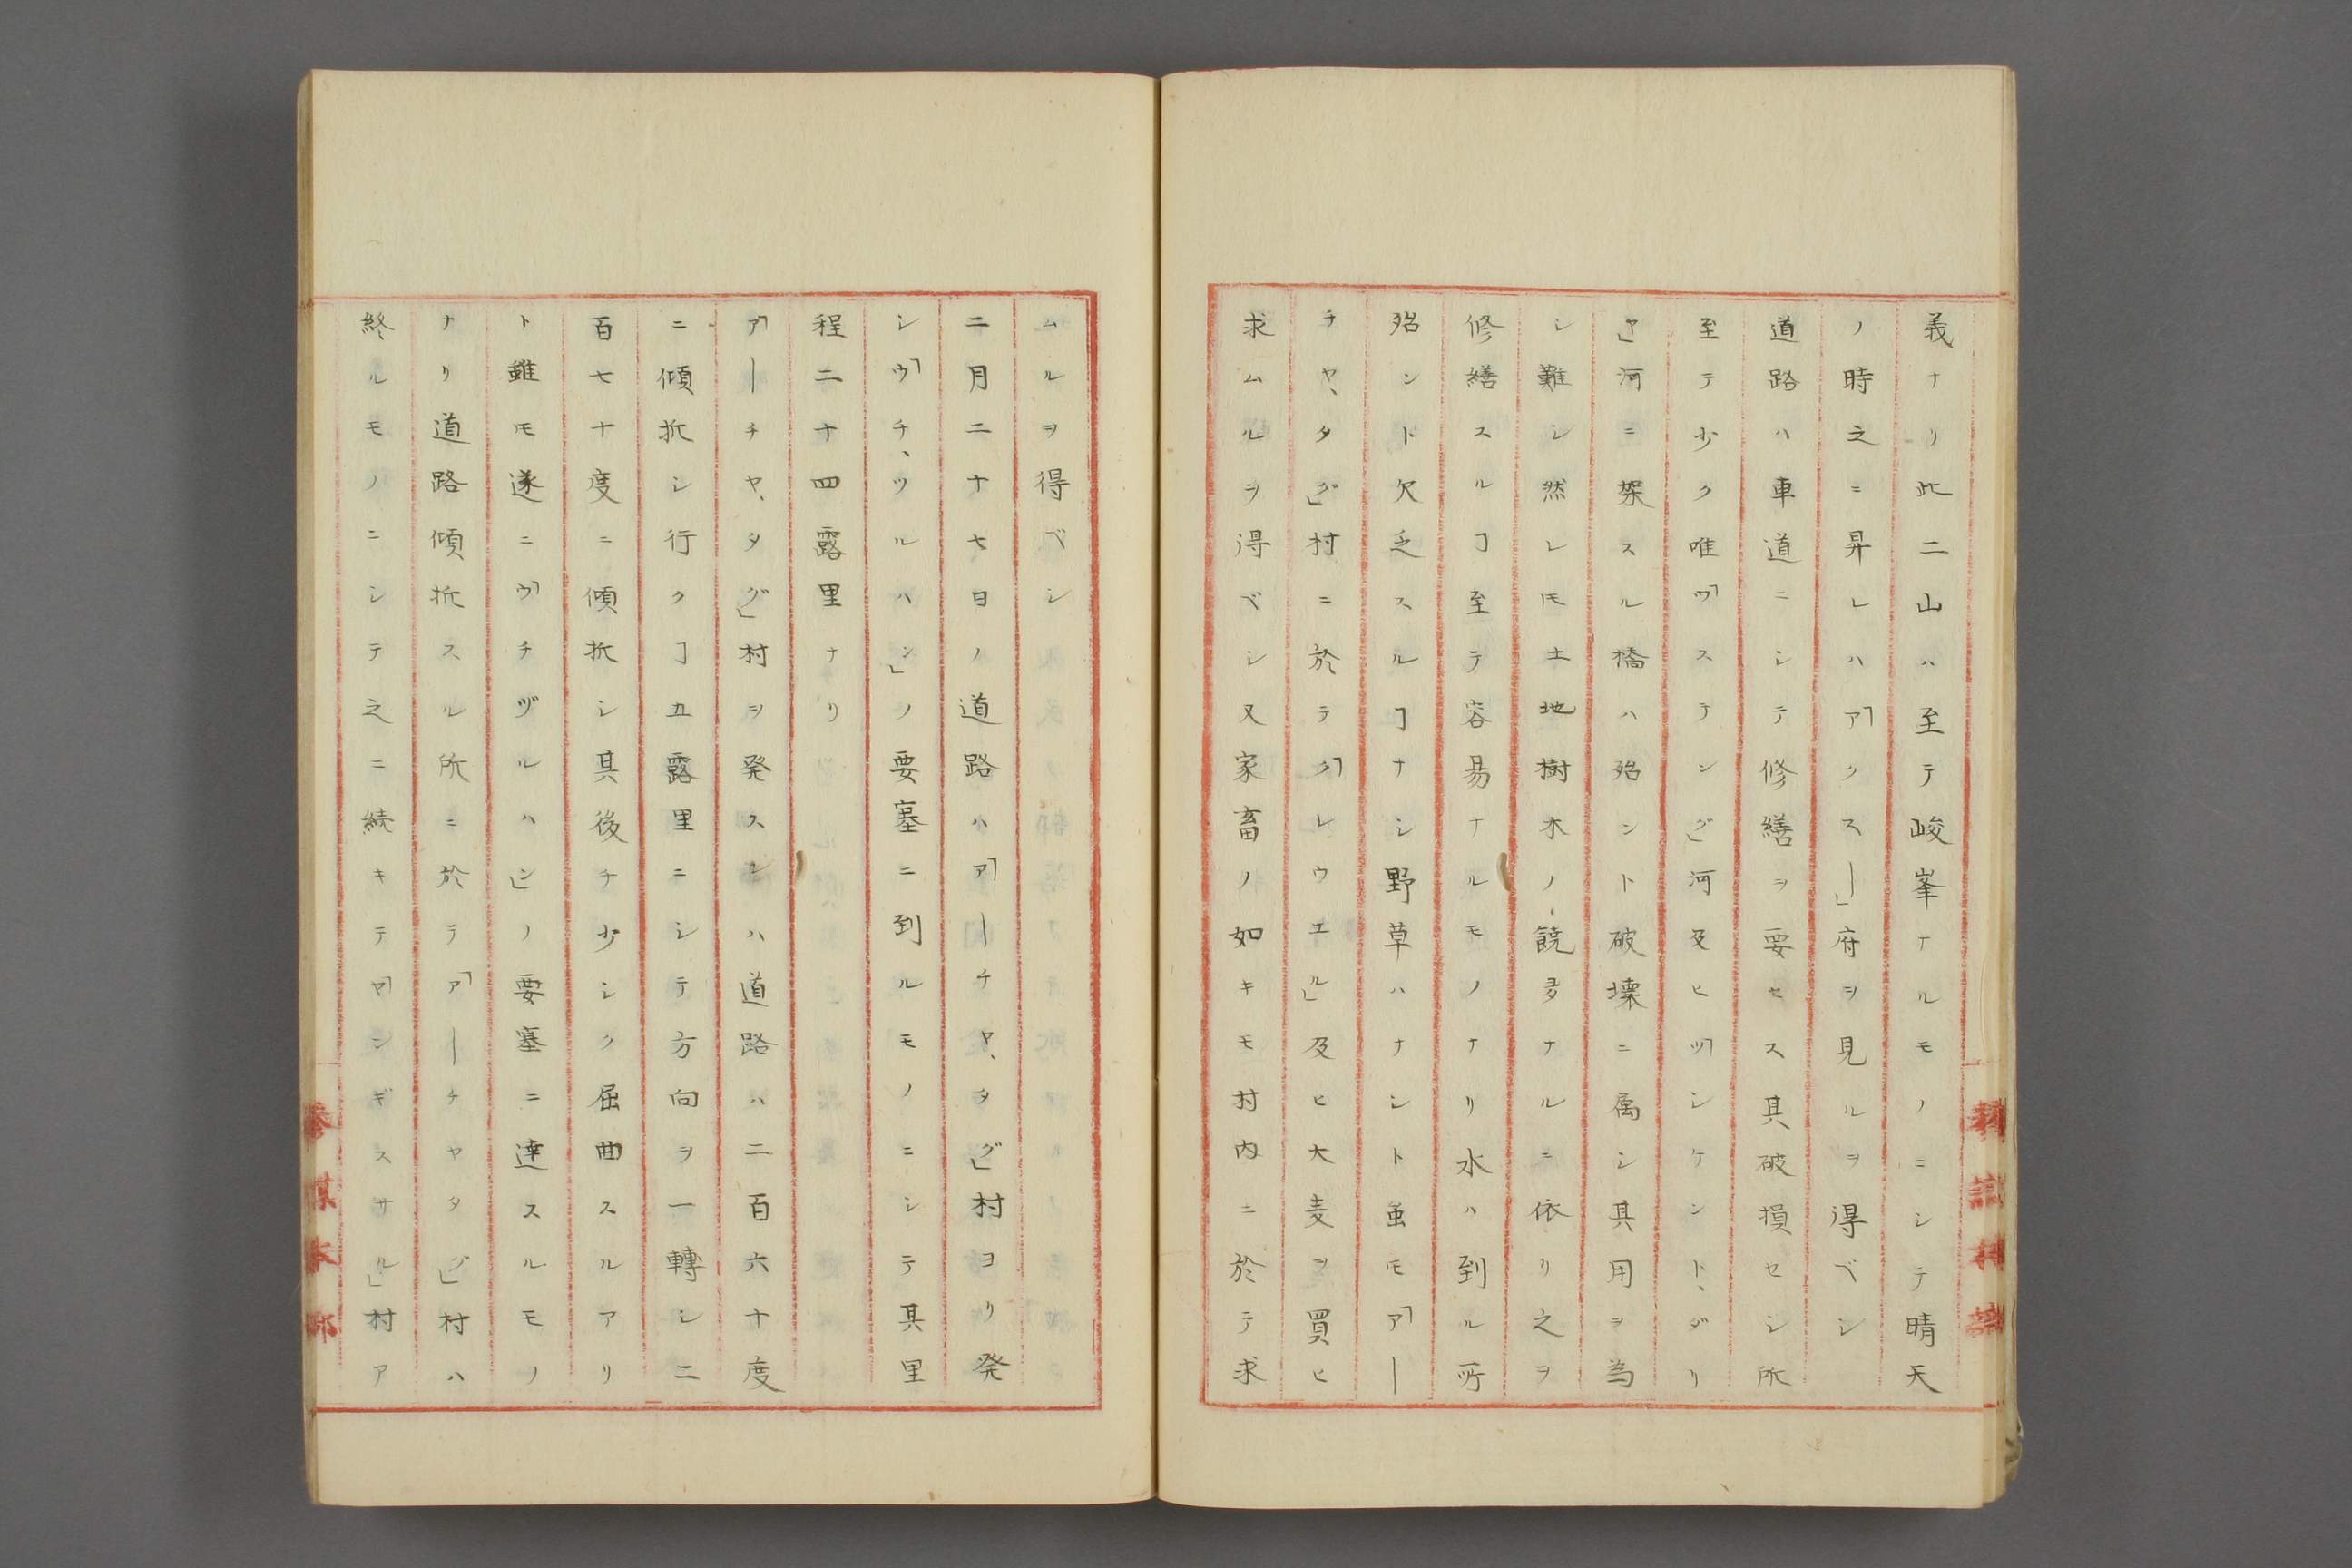 義ナリ此二山ハ至テ峻峯ナルモノニシテ晴天
ノ時之ニ昇レハ「アクスー」府ヲ見ルヲ得ベシ
道路ハ車道ニシテ修繕ヲ要セス其破損セシ所
至テ少ク唯「ウステング」河及ヒ「ツシケント、ダリ
ヤ」河ニ架スル橋ハ殆ント破壊ニ属シ其用ヲ為
シ難シ然レ𪜈土地樹木ノ饒多ナルニ依リ之ヲ
修繕スルヿ至テ容易ナルモノナリ水ハ到ル所
殆ント欠乏スルヿナシ野草ハナシト虽𪜈「アー
チヤ、タグ」村ニ於テ「クレウエル」及ヒ大麦ヲ買ヒ
求ムルヲ得ベシ又家畜ノ如キモ村内ニ於テ求
ムルヲ得ベシ
二月二十七日ノ道路ハ「アーチヤ、タグ」村ヨリ発
シ「ウチ、ツルハン」ノ要塞ニ到ルモノニシテ其里
程二十四露里ナリ
「アーチヤ、タグ」村ヲ発スレハ道路ハ二百六十度
ニ傾折シ行クヿ五露里ニシテ方向ヲ一轉シ二
百七十度ニ傾折シ其後チ少シク屈曲スルアリ
ト雖𪜈遂ニ「ウチヅルハン」ノ要塞ニ達スルモノ
ナリ道路傾折スル所ニ於テ「アーチヤタグ」村ハ
終ルモノニシテ之ニ続キテ「ヤンギスサル」村ア
參謀本部